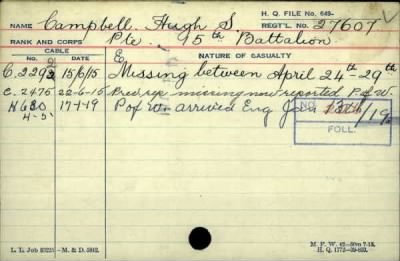 H. Q. FILE No. 649-
NAME Campbell, Hugh S REGT'L. No. 27607
RANK AND CORPS Pte. 15th Battalion
CABLE
No. DATE NATURE OF CASUALTY
C.2292 15/6/15 Missing between April 24th-29th
C.2475 22-6-15 Prev. rep. missing now reported P.of.W.
H630 17-1-19 P of W. arrived Eng Jan 13th/19
4-5
NO.
FOLL.
L. L. Job 89225—M. & D. 5942.
M. F. W. 42—50m 7-18.
H. Q. 1772-39-893.